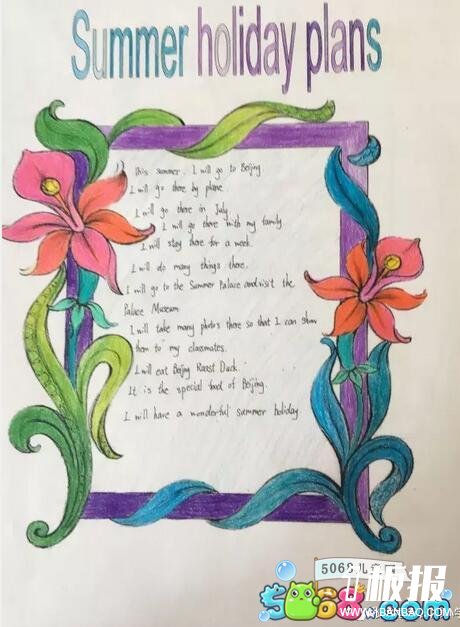 Summer holiday plans
This summer. I will go to Beijing.
I will go there by plane.
I will go there in July
I will go there with my family.
I will stay there for a week.
I will do many things there.
I will go to the Summer Palace and visit the
Palace Museum
I will take many photos there so that I can show
them to my classmates.
I will eat Beijing Roast Duck.
It is the special food of Beijing.
I will have a wonderful summer holiday.
5068儿
板报
5068.com